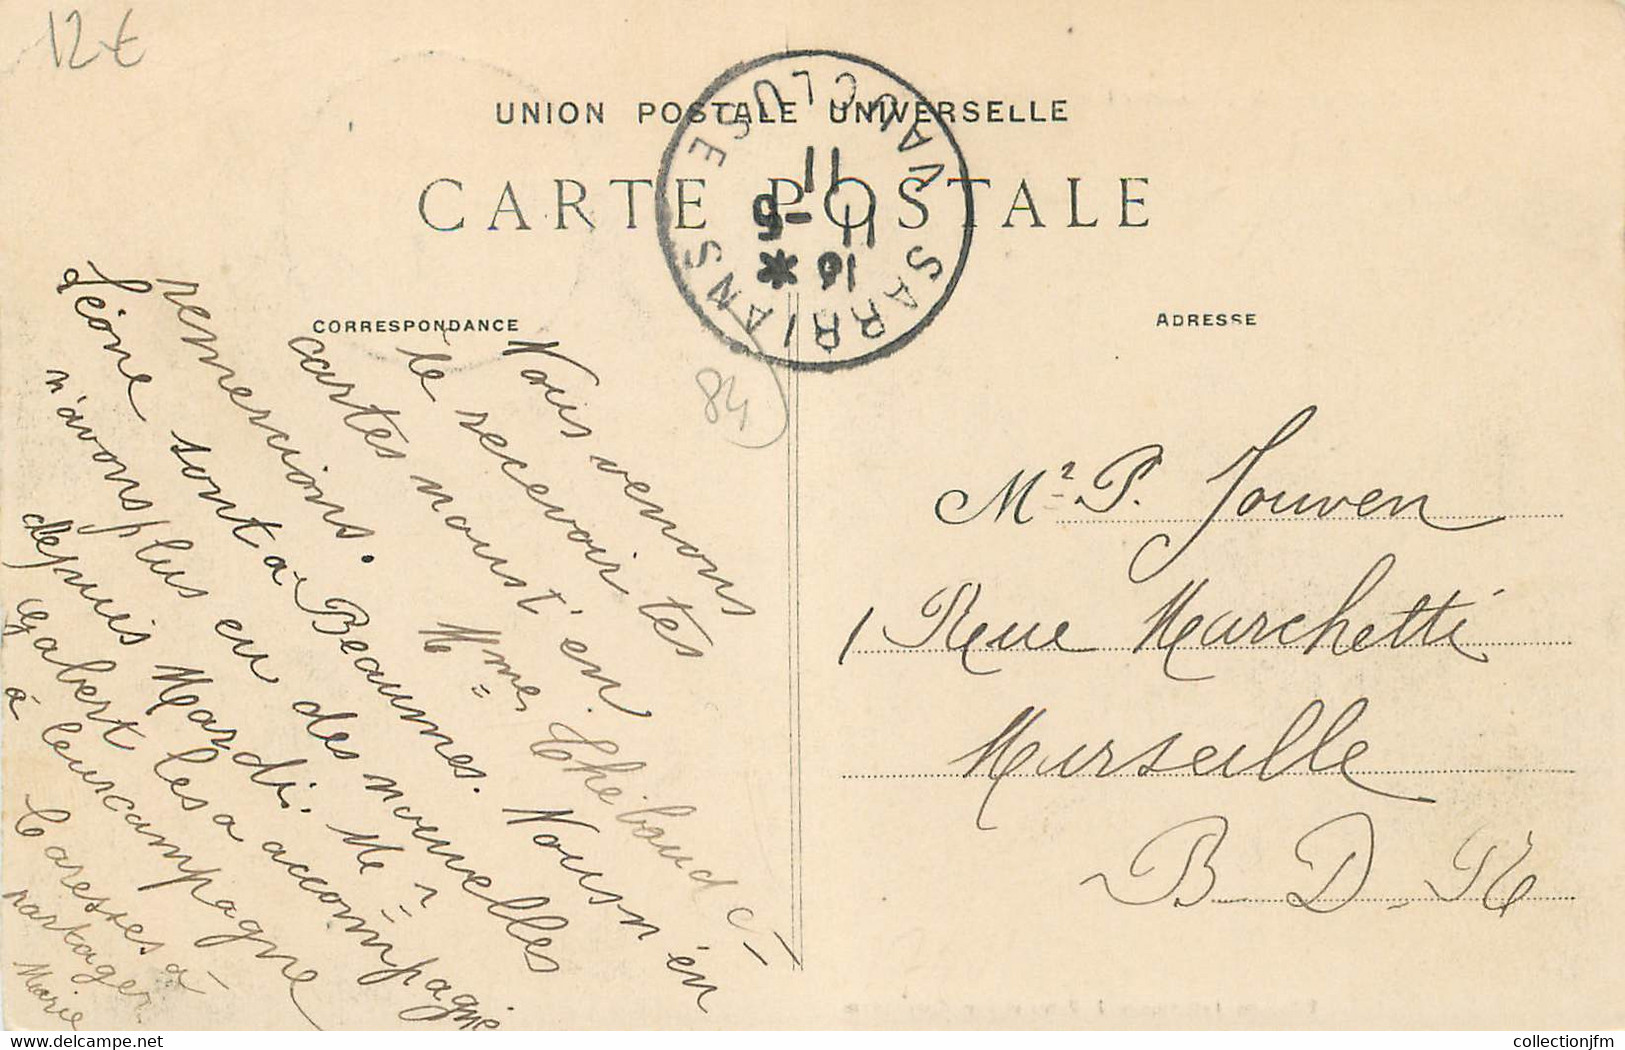 12€
UNION POSTALE UNIVERSELLE
CARTE POSTALE
SARRIANS
VAUCLUSE
11
5 - 11
10
*
CORRESPONDANCE
ADRESSE
84
Nous venons
de recevoir tes
cartes nous t'en
remercions. Mmes Thébaud &
Léone sont à Beaumes. Nous n'en
n'avons plus eu des nouvelles
depuis Mardi. Mr
Gabert les a accompagné
à leur campagne
Caresses à
partager
Marie
Mr P. Jouven
1 Rue Marchetti
Marseille
B D. R
collectionjfm